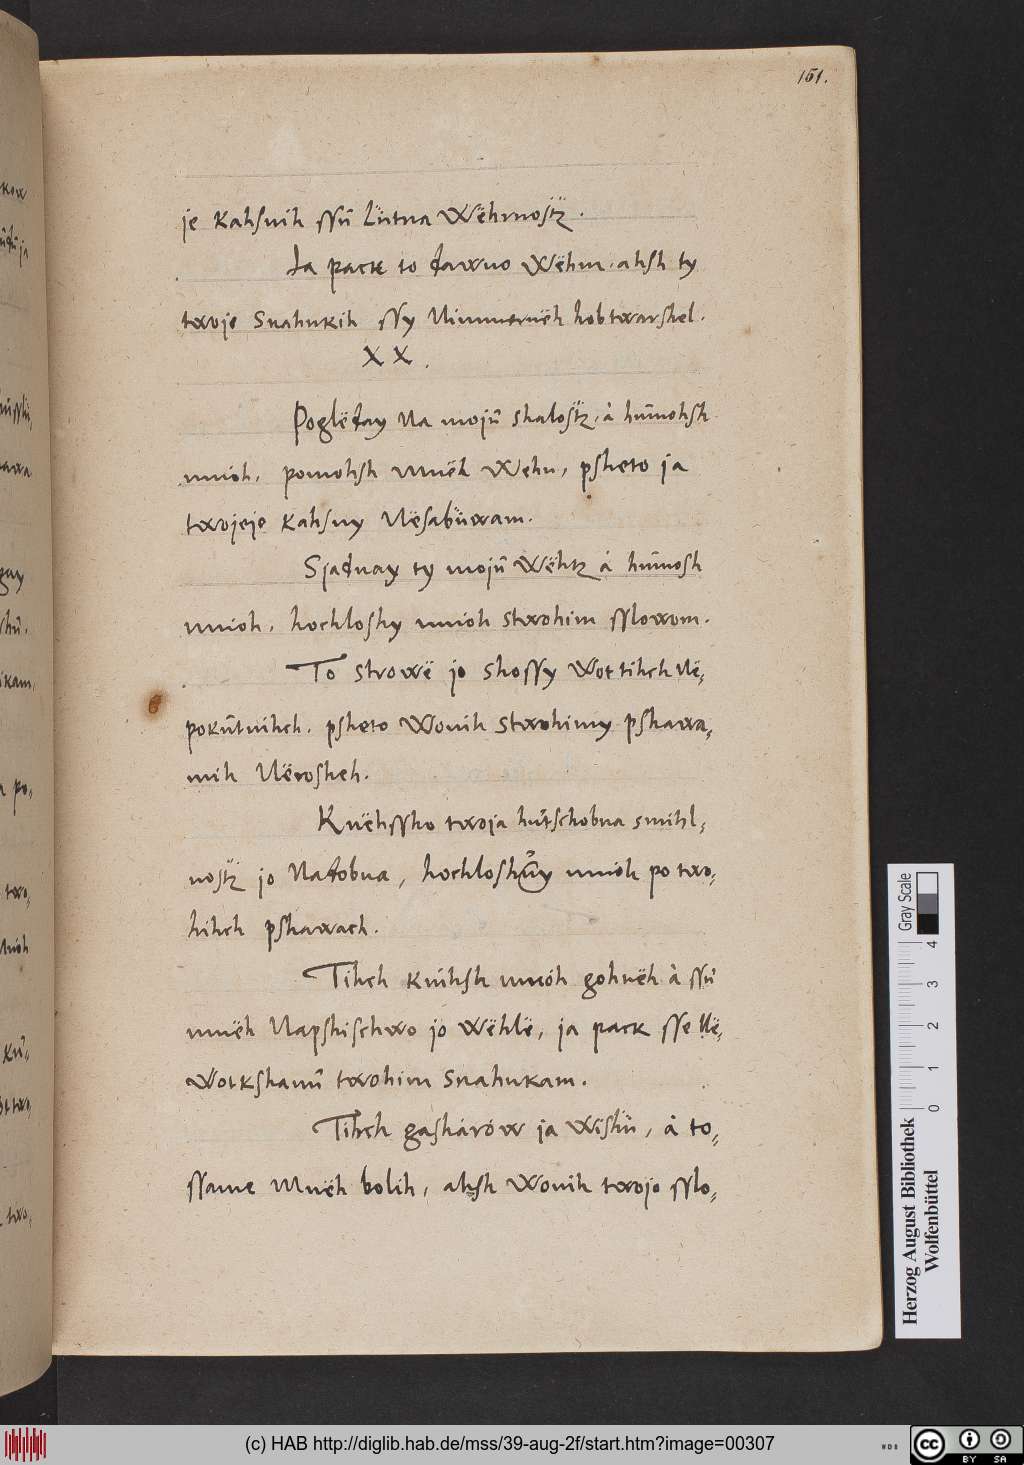 161.
je Kahsnih ssū lutna Wëhrnostz.
Ja pack to dawno Wëhm, ahsh ty
twoje Snahnkih ssy Nimmernëh hobtwarshel.
XX.
Poglëday Na mojū shalostz, à hūmohsh
mnióh, pomohsh Mnëh Wehn, psheto ja
twojeje Kahsny Nësabūwam.
Sjadnay ty mojū Wëhtz à hūmosh
mnioh, hochloshy mnioh stwohim sslowom.
To strowë jo shossy Wottihch Në-
pokūtnihch, psheto Wonih stwohimy pshawa-
mih Nërosheh.
Knëhssho twoja hūtschobna smihl-
nostz jo Nadobna, hochloshūy mnióh po two-
hihch pshawach.
Tihch knihsh mnóh gohnëh à ssū
mnëh Napshischwo jo wëhlë, ja pack sse Në-
wotkshanū twohim Snahnkam.
Tihch gasharów ja Wishū, à to-
ssame Mnëh bolih, ahsh Wonih twojo sslo-
Gray Scale
4
3
2
1
0
Herzog August Bibliothek
Wolfenbüttel
(c) HAB http://diglib.hab.de/mss/39-aug-2f/start.htm?image=00307
WDB
cc
BY SA